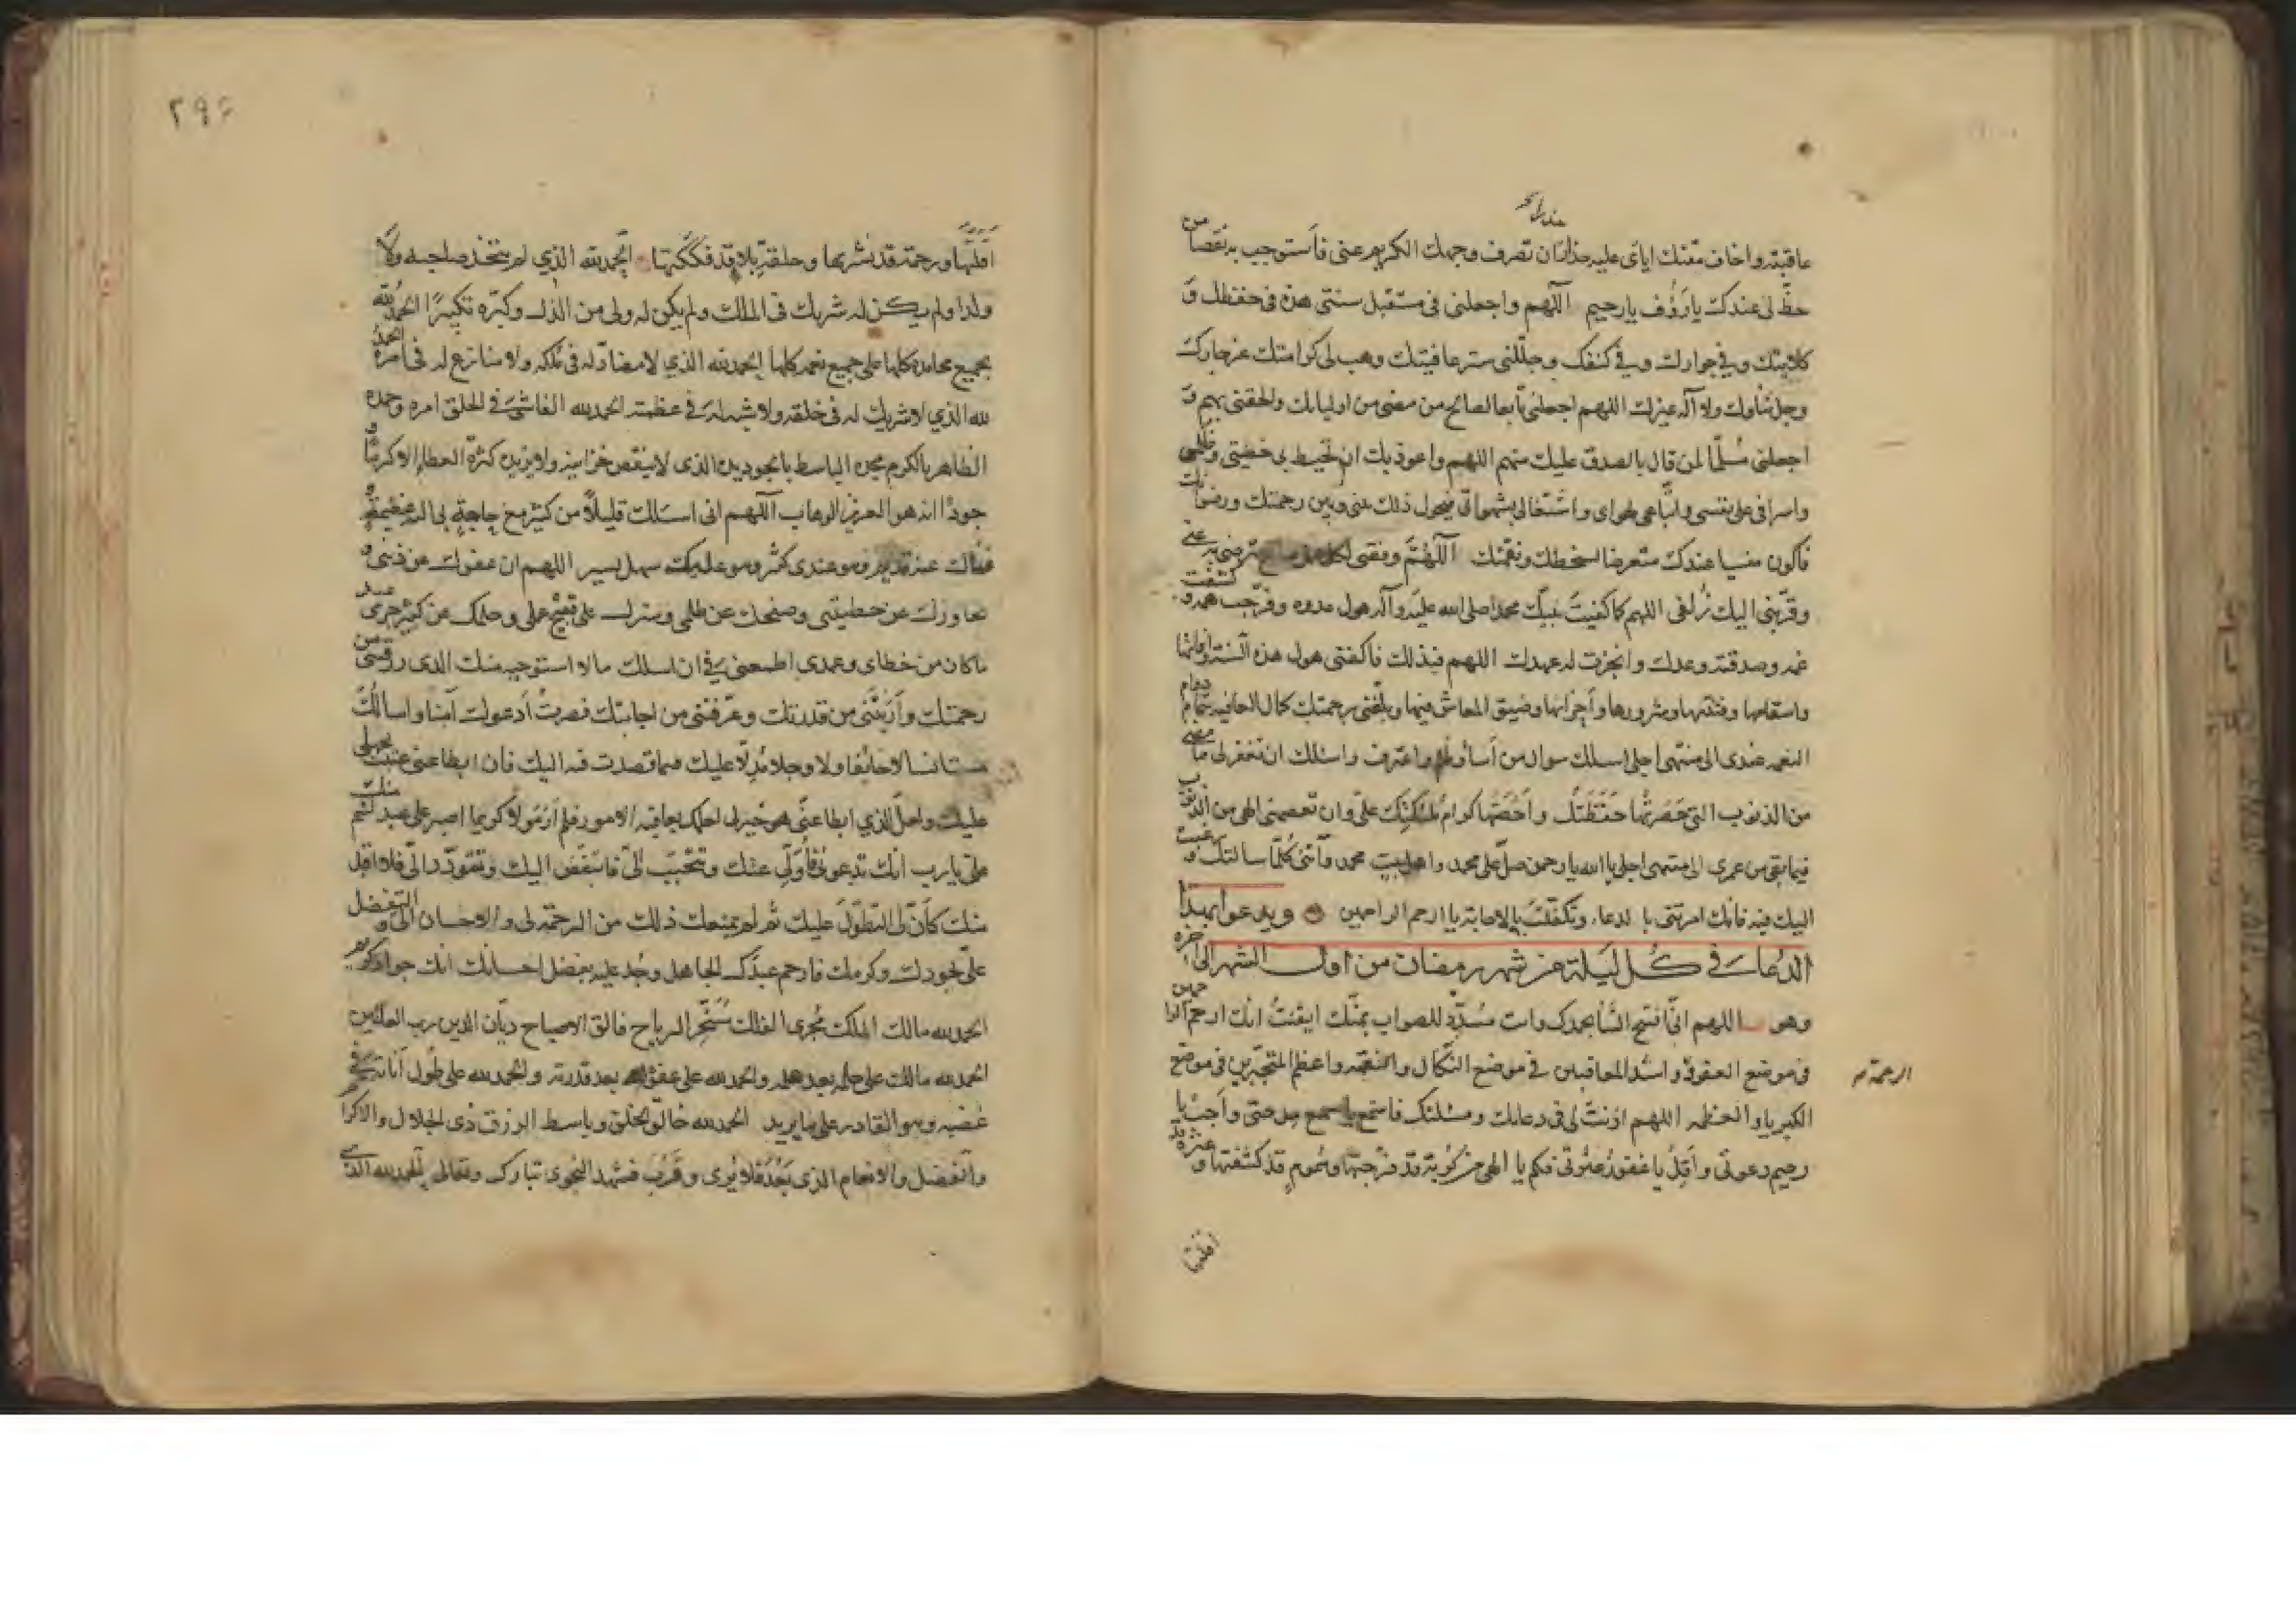 عاقبته واخاف مقتك اياى عليه حذار ان تصرف وجهك الكريم عنى فاستوجب به نقصا من
حظ لى عندك يا رؤف يا رحيم اللهم واجعلنى فى مستقبل سنتى هذه فى حفظك و
كلايتك وفى جوارك وفى كنفك وجللنى ستر عافيتك وهب لى كرامتك عز جارك
وجل ثناوك ولا اله غيرك اللهم اجعلنى تابعا لصالح من مضى من اوليائك والحقنى بهم و
اجعلنى مُسلّما لمن قال بالصدق عليك منهم اللهم واعوذ بك ان تحيط بى خطيئتى وظلمى
واسرافى على نفسى واتّباعى لهواى واشتغالى بشهواتى فيحول ذلك بينى وبين رحمتك ورضوانك
فاكون منسيا عندك متعرضا لسخطك ونقمتك اللهم وفقنى لكل عمل صالح ترضى به عنى
وقرّبنى اليك زُلفى اللهم كما كفيتَ نبيك محمدا صلى الله عليه وآله هول عدوه وفرّجت همه و كشفت
غمه وصدقته وعدك وانجزت له عهدك اللهم فبذلك فاكفنى هول هذه السنة وافاتها
واسقامها وفتنتها وشرورها واحزانها وضيق المعاش فيها وبلّغنى برحمتك كمال العافيه بتمام دوام
النعمه عندى الى منتهى اجلى اسلك سوال من أساء وظلم واعترف واسئلك ان تغفر لى ما مضى
من الذنوب التى حَصَرَتْها حَفَظَتُك وأحْصَتْها كرام ملئكتك علىّ وان تعصمنى الهى من الذنوب
فيما بقى من عمرى الى منتهى اجلى يا الله يا رحمن صلّ على محمد واهل بيت محمد وآتنى كلّما سالتك و رغبت
اليك فيه فانك امرتنى بالدعاء وتكفّلتَ بالاجابة يا ارحم الراحمين ويدعو بهذا
الدُعاء فى كُل ليلة من شهر رمضان من اول الشهر الى اخره
وهو اللهم انّى افتتح الثنا بحمدك وانت مُسَدّد للصواب بمنّك ايقنتُ انك ارحم الراحمين
فى موضع العفو واشد المعاقبين فى موضع النّكال والنقمة واعظم المتجبّرين فى موضع
الرحمة
الكبريا والعظمه اللهم اذنتَ لى فى دعائك ومسئلتك فاسمع يا سميع مدحتى وأجب يا
رحيم دعوتى وأقِل يا غفور عثرتى فكم يا الهى من كُربة قد فرّجتها وهموم قد كشفتها و عثرة قد
اقلتها
٢٩٤
اقلتها ورحمة قد نشرتها وحلقة بلاء قد فككتها الحمد لله الذي لم يتخذ صاحبه ولا
ولدا ولم يكن له شريك فى الملك ولم يكن له ولى من الذل وكبّره تكبيرًا الحمد لله
بجميع محامده كلها على جميع نعمه كلها الحمد لله الذي لا مضادّ له فى مُلكه ولا منازع له فى امره الحمد
لله الذي لا شريك له فى خلقه ولا شبه له فى عظمته الحمد لله الفاشى فى الخلق امره وحمده
الظاهر بالكرم مجده الباسط بالجود يده الذى لا ينقص خزاينه ولا يزيده كثرة العطا الا كرمًا و
جودًا انه هو العزيز الوهاب اللهم انى اسئلك قليلًا من كثير مع حاجة بى اليه عظيمة و
غناك عنه قديم وهو عندى كثير وهو عليك سهل يسير اللهم ان عفوك عن ذنبى و
تجاوزك عن خطيئتى وصفحك عن ظلمى وسترك على قبيح عملى وحلمك عن كثير جرمى عند
ما كان من خطاى وعمدى اطمعنى فى ان اسئلك ما لا استوجبه منك الذى رزقتنى من
رحمتك وأرَيْتَنى من قدرتك وعرّفتنى من اجابتك فصرتُ أدعوك آمنا واسالك
مستانسا لا خائفا ولا وجلا مُدِلّا عليك فيما قصدت فيه اليك فان ابطا عنى عتبت بجهلى
عليك ولعل الذي ابطا عنّى هو خير لى لعلمك بعاقبه الامور فلم أرَ مَولا كريما اصبر على عبد لئيم منك
علىّ يا رب انّك تدعونى فأُوَلّى عنك وتتحبّب الىّ فاتبغّض اليك وتتودّد الىّ فلا اقبل
منك كأنّ لى التطوّل عليك ثم لم يمنعك ذلك من الرحمة لى والاحسان الىّ و التفضل
علىّ بجودك وكرمك فارحم عبدك الجاهل وجُد عليه بفضل احسانك انك جواد كريم
الحمد لله مالك الملك مُجرى الفلك مُسَخّر الرياح فالق الاصباح ديّان الدين رب العالمين
الحمد لله على حلمه بعد علمه والحمد لله على عفوه بعد قدرته والحمد لله على طُول أناته فى
غضبه وهو القادر على ما يريد الحمد لله خالق الخلق وباسط الرزق ذى الجلال والاكرام
والفضل والانعام الذى بَعُدَ فلا يُرى وقَرُب فشهد النجوى تبارك وتعالى الحمد لله الذى